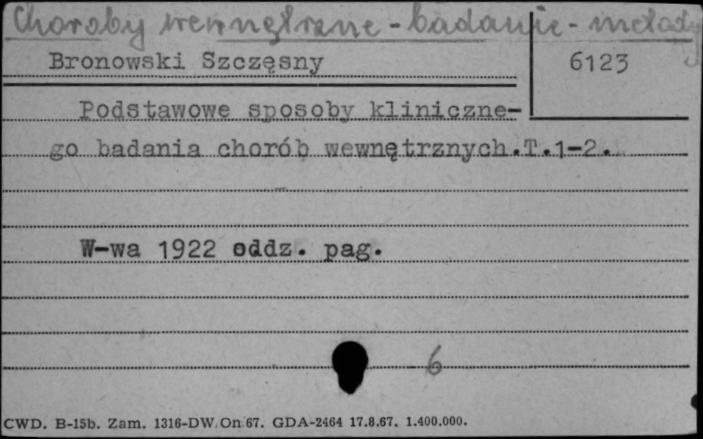 Choroby wewnętrzne - badanie - metody
Bronowski Szczęsny
6123
Podstawowe sposoby kliniczne-
go badania chorób wewnętrznych.T.1-2.
W-wa 1922 oddz. pag.
6
CWD. B-15b. Zam. 1316-DW.On 67. GDA-2464 17.8.67. 1.400.000.